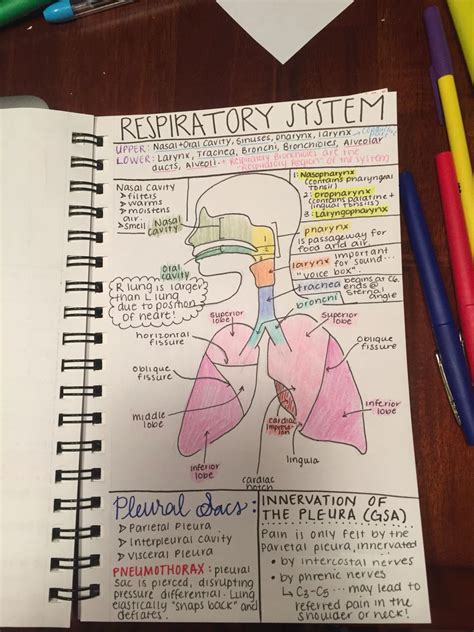 RESPIRATORY SYSTEM
UPPER: Nasal+Oral Cavity, Sinuses, pharynx, larynx
LOWER: Larynx, Trachea, Bronchi, Bronchioles, Alveolar
ducts, Alveoli * Respiratory Bronchioles are the
"Respiratory Region" of the system
Nasal Cavity
➢ filters
➢ warms
➢ moistens
air.
➢ smell
Nasal
cavity
1: Nasopharynx
(contains pharyngeal
tonsil)
2: Oropharynx
(contains palatine +
lingual tonsils)
3: Laryngopharynx
1
2
3
pharynx
is passageway for
food and air.
Oral
cavity
larynx important
for sound...
"voice box".
trachea begins at C6.
ends @
sternal
angle
bronchi
R lung is larger
than L lung
due to position
of heart!
superior
lobe
superior
lobe
horizontal
fissure
oblique
fissure
oblique
fissure
middle
lobe
cardiac
impression
inferior
lobe
inferior
lobe
lingula
cardiac
notch
Pleural Sacs:
➢ Parietal Pleura
➢ Interpleural cavity
➢ Visceral Pleura
PNEUMOTHORAX: pleural
sac is pierced, disrupting
pressure differential. Lung
elastically "snaps back" and
deflates.
INNERVATION OF
THE PLEURA (GSA)
Pain is only felt by the
Parietal pleura, innervated
• by intercostal nerves
• by phrenic nerves
↳ C3-C5... may lead to
referred pain in the
shoulder or neck!